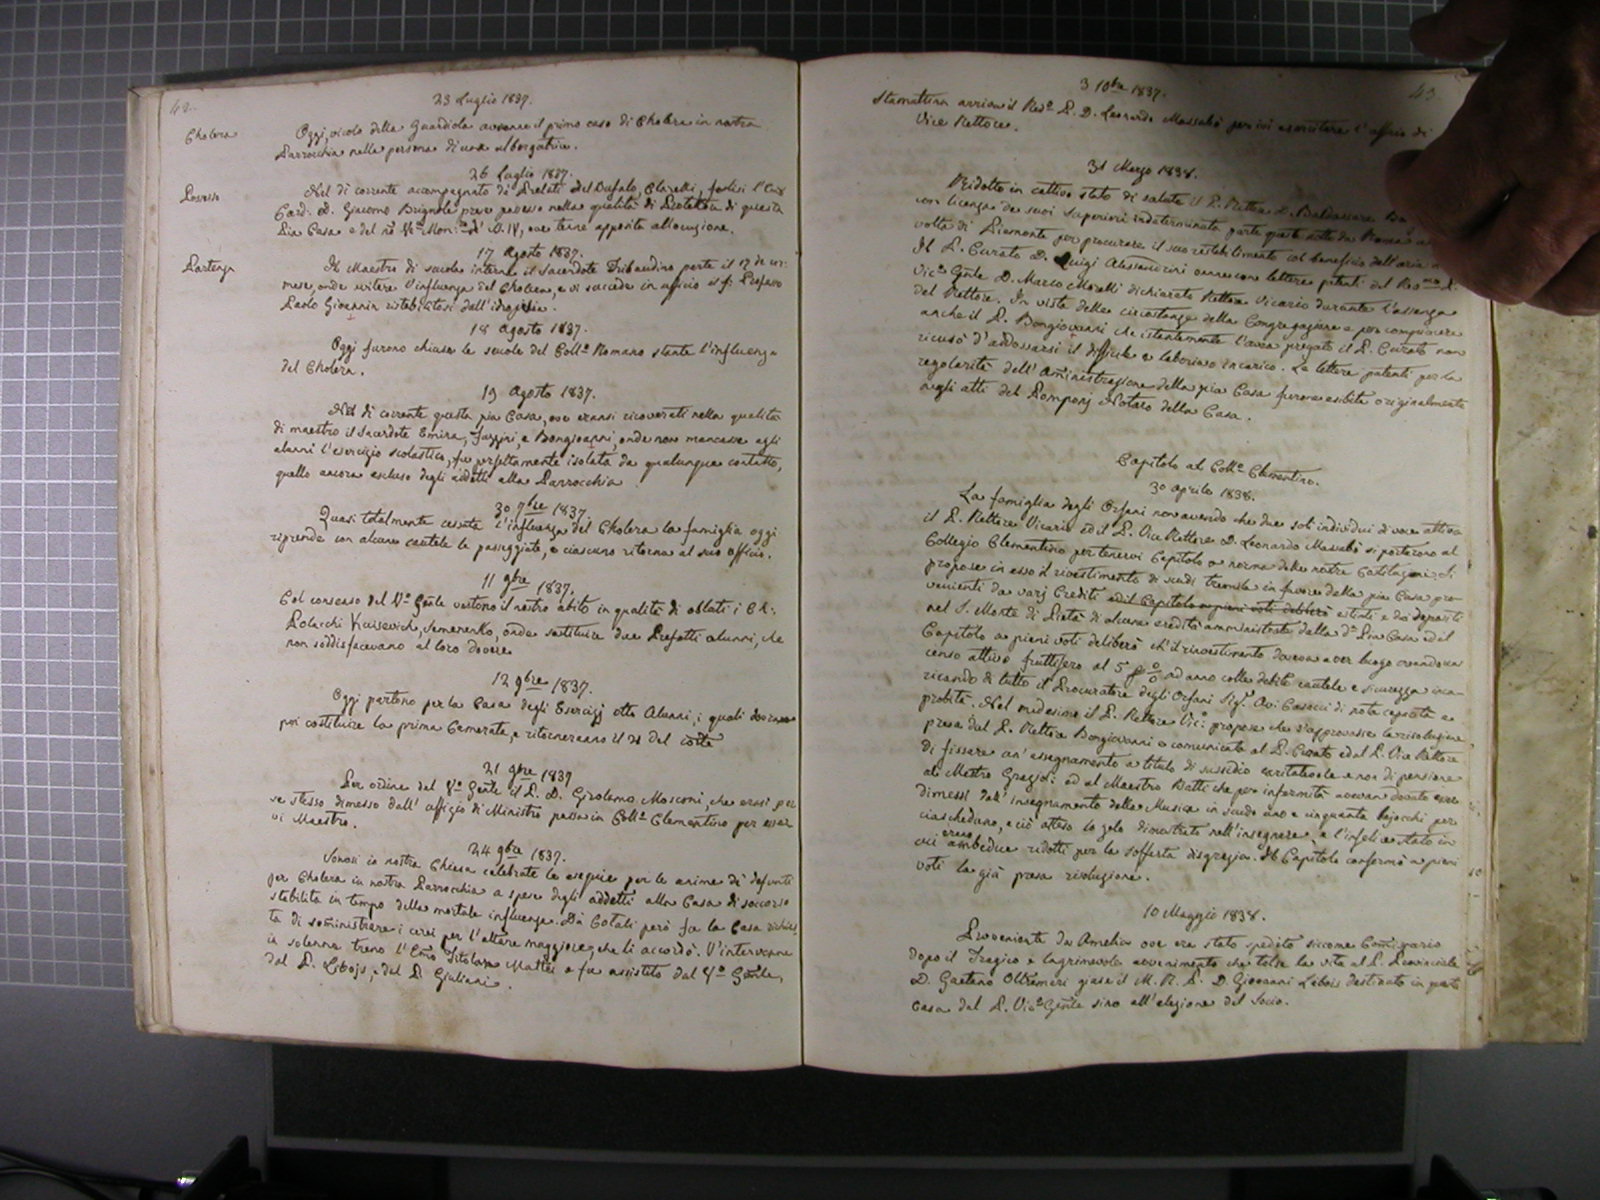 42.
23 Luglio 1837.
Cholera
Oggi, vicolo della Guardiola avvenne il primo caso di Cholera in nostra
Parrocchia nella persona di una albergatrice.
26 Luglio 1837.
Possesso
Nel dì corrente accompagnato di Prelati Del Bufalo, Clarelli, l'Emo
Card. D. Giacomo Brignole prese possesso nella qualità di Protettore di questa
Pia Casa e del ove tenne apposita allocuzione.
17 Agosto 1837.
Partenza
Il Maestro di scuola interna il Sacerdote Tribaudino parte il 17 de cor:
mese, onde evitare l'influenza del Cholera, e vi succede in ufficio il Prefetto
Paolo Gioannin ristabilitosi dall'idropisia.
18 Agosto 1837.
Oggi furono chiuse le scuole del Coll.o Romano stante l'influenza
del Cholera.
19 Agosto 1837.
Nel dì corrente questa pia Casa, ove eransi ricoverati nella qualità
di maestro il Sacerdote Emira, Fazzini, e Bongioanni, onde non mancasse agli
alunni l'esercizio scolastico, fu perfettamente isolata da qualunque contatto,
quello ancora escluso degli addetti alla Parrocchia.
30 7bre 1837.
Quasi totalmente cessata l'influenza del Cholera la famiglia oggi
riprende con alcune cautele le passeggiate, e ciascuno ritorna al suo officio.
11 9bre 1837.
Col consenso del V.o Gnle vestono il nostro abito in qualità di oblati i Ch:
Polacchi Kaisevich, Semenenko, onde sostituire due Prefetti alunni, che
non soddisfacevano al loro dovere.
12 9bre 1837.
Oggi partono per la Casa degli Esercizj otto Alunni, i quali dovranno
poi costituire la prima Camerata, e ritorneranno il 21 del corrte
21 9bre 1837
Per ordine del V.o Gnle il P. D. Girolamo Mosconi, che erasi per
se stesso dimesso dall'uffizio di Ministro passa in Coll.o Clementino per esser
vi Maestro.
24 9bre 1837.
Sonosi in nostra Chiesa celebrate le esequie per le anime di defunti
per Cholera in nostra Parrocchia a spese degli addetti alla Casa di soccorso
stabilita in tempo della mortale influenza. Da Cotali però fu la Casa richies
ta di somministrare i cerei per l'altare maggiore, che li accordò. V'intervenne
in solenne treno l'Emo Titolare Mattei e fu assistito dal V.o Gnle,
dal P. Libois, e dal P. Giuliani.
43
3 10bre 1837.
Stamattina arriva il Rev.o P. D. Leonardo Massabò per ivi esercitare l'affizio di
Vice Rettore.
31 Marzo 1838.
Ridotto in cattivo stato di salute il P. Rettore D. Baldassare
con licenza de suoi Superiori indeterminata parte questa notte da Roma
volta di Piemonte per procurare il suo ristabilimento col beneficio dell'aria
Il P. Curato D. Luigi Alessandrini venne con lettere patenti del Rev.mo P.
Vic.o Gnle D. Marco Morelli dichiarato Rettore Vicario durante l'assenza
del Rettore. In vista delle circostanze della Congregazione e per compiacere
anche il P. Bongiovanni che istantemente l'avea pregato il P. Curato non
ricusò d'addossarsi il difficile e laborioso incarico. Le lettere patenti per la
regolarità dell'Amministrazione della pia Casa furono esibite originalmente
negli atti del Pomponj Notaro della Casa.
Capitolo al Coll.o Clementino.
30 aprile 1838.
La famiglia degli Orfani non avendo che due soli individui di voce attiva
il P. Rettore Vicario ed il P. Vice Rettore D. Leonardo Massabò si portarono al
Collegio Clementino per tenervi Capitolo a norma delle nostre Costituzioni. Si
propose in esso il rivestimento di scudi tremila in favore della pia Casa pro-
venienti da varj Crediti ed il Capitolo a pieni voti deliberò estinti e da depositi
nel S. Monte di Pietà di alcune eredità amministrate dalla d.a Pia Casa ed il
Capitolo a pieni voti deliberò ch'il rinvestimento dovesse aver luogo creando un
censo attivo fruttifero al 5 p % ad anno colle debite cautele e sicurezze inca-
ricando di tutto il Procuratore degli Orfani Sig.r Avv. Casacci di nota capacità e
probità. Nel medesimo il P. Rettore Vic: propose che s'approvasse la risoluzione
presa dal P. Rettore Bongiovanni e comunicata al P. Curato ed al P. Vice Rettore
di fissare un'assegnamento a titolo di sussidio caritatevole e non di pensione
al Mastro Grazioli ed al Maestro Batti che per infermità aveano dovuto esser
dimessi dall'insegnamento della Musica in scudo uno e cinquanta bajocchi per
ciascheduno, e ciò atteso lo zelo dimostrato nell'insegnare, e l'infelice stato in
cui erano ambedue ridotti per la sofferta disgrazia. Il Capitolo confermò a pieni
voti la già presa risoluzione.
10 Maggio 1838.
Proveniente da Amelia ove era stato spedito siccome Commissario
dopo il Tragico e lagrimevole avvenimento che tolse la vita al P. Provinciale
D. Gaetano Oltremari giunse il M. R. P. D. Giovanni Libois destinato in questa
Casa dal P. Vic.o Gnle sino all'elezione del Socio.